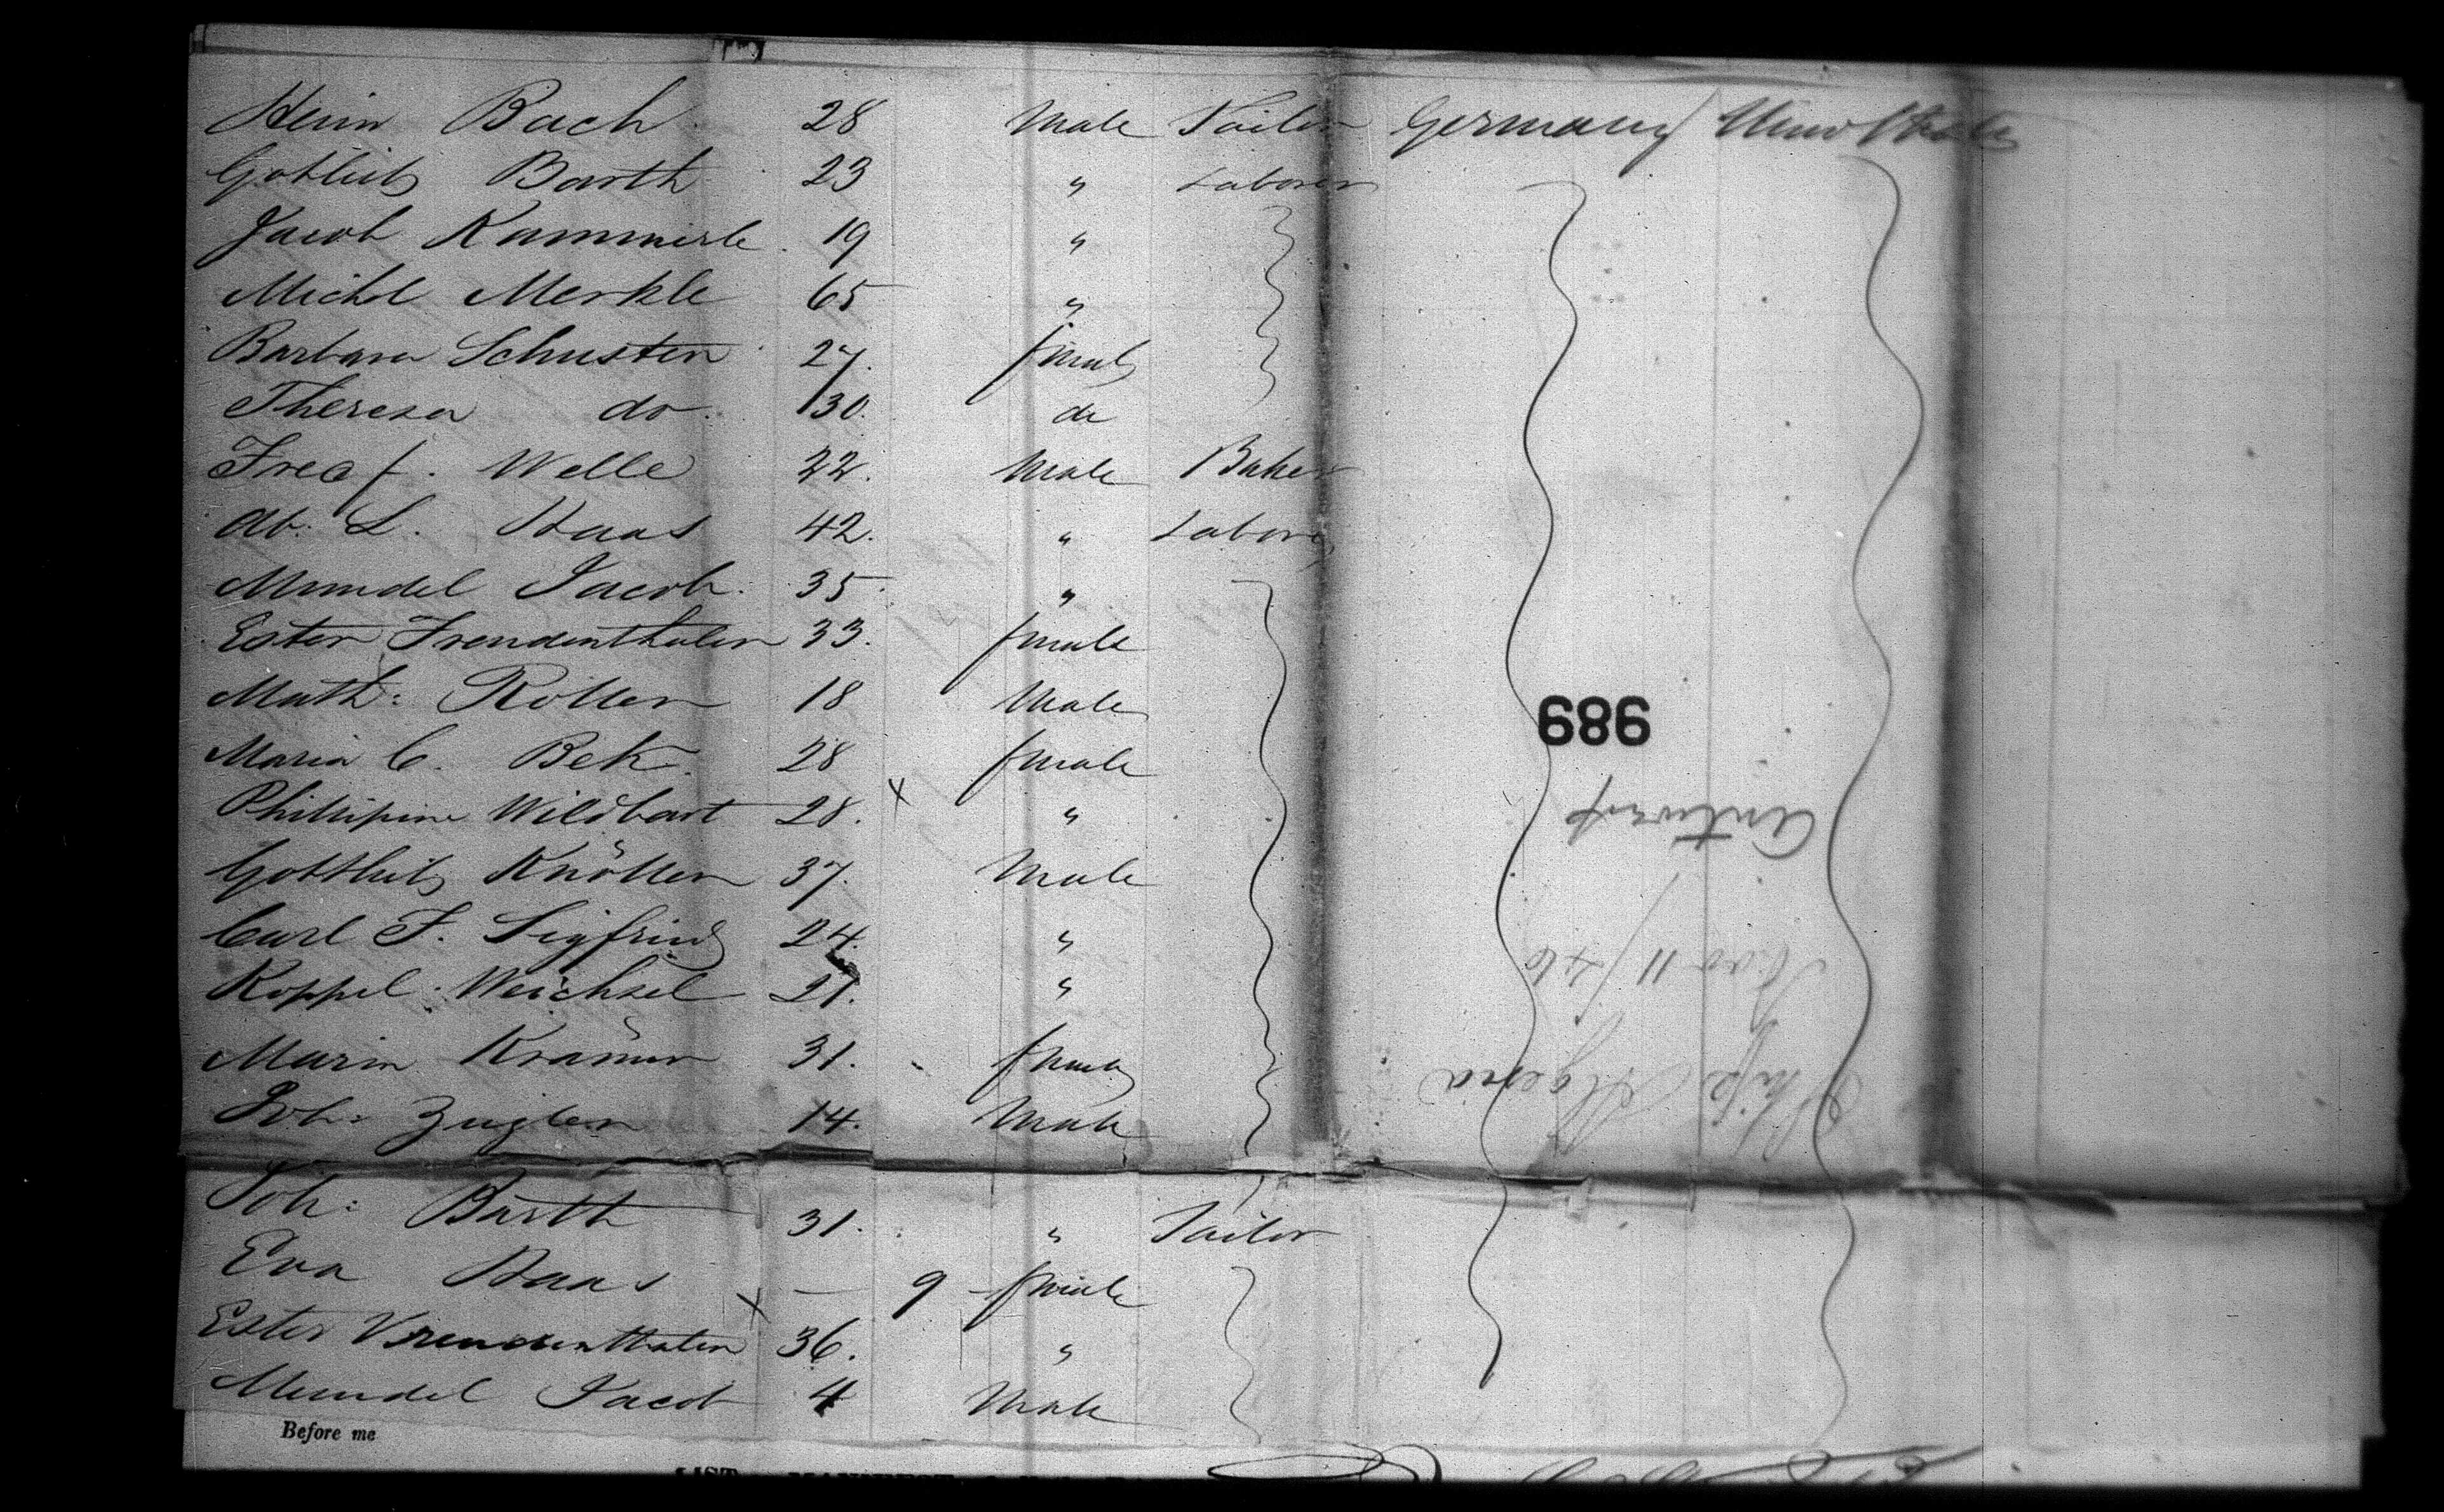 Heinr Bach 28 Male Tailor Germany United States
Gottlieb Barth 23 " Laborer
Jacob Kammerle 19 "
Michl Merkle 65 "
Barbara Schuster 27. female
Theresa do. 30. do
Fred f. Welle 22. Male Baker
Ab. L. Haas 42. " Laborer
Mundel Jacob. 35 "
Ester Freudenthaler 33. female
Math: Roller 18 Male
Maria C. Bek. 28 female
Phillipine Wildbart 28. x "
Gottlieb Knöller 37. Male
Carl F. Sigfried 24. "
Koppel Weichsel 27. "
Maria Krämer 31. female
Joh: Zugler 14. Male
Joh: Barth 31. " Tailor
Eva Haas x — 9 female
Ester Vreudenthaler 36. "
Mundel Jacob 4 Male
Before me
686
Ship Algeria
Nov 11/46
Antwerp